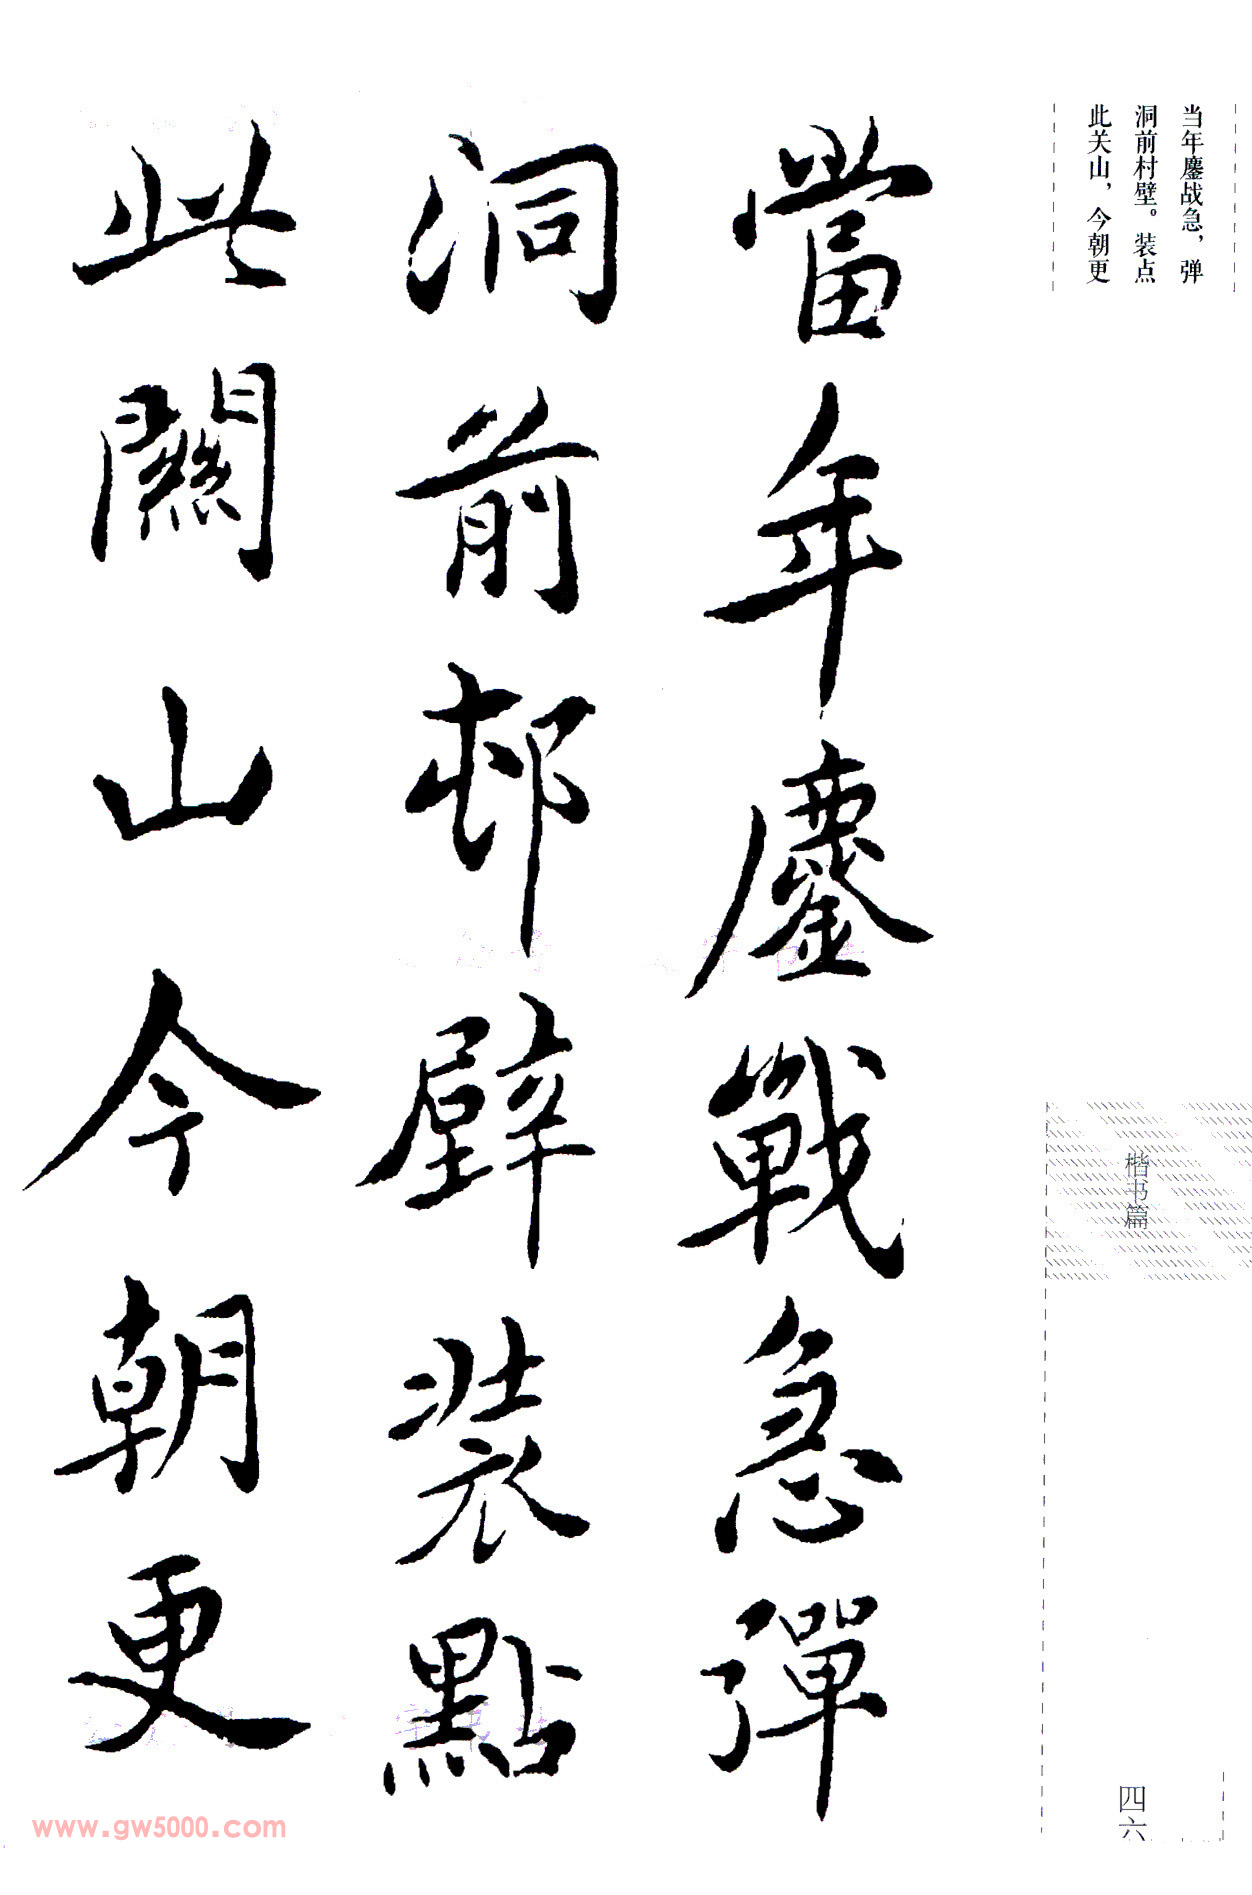 当年鏖战急，弹
洞前村壁。装点
此关山，今朝更
當年鏖戰急彈
洞前邨壁装點
此關山今朝更
楷书篇
四六
www.gw5000.com